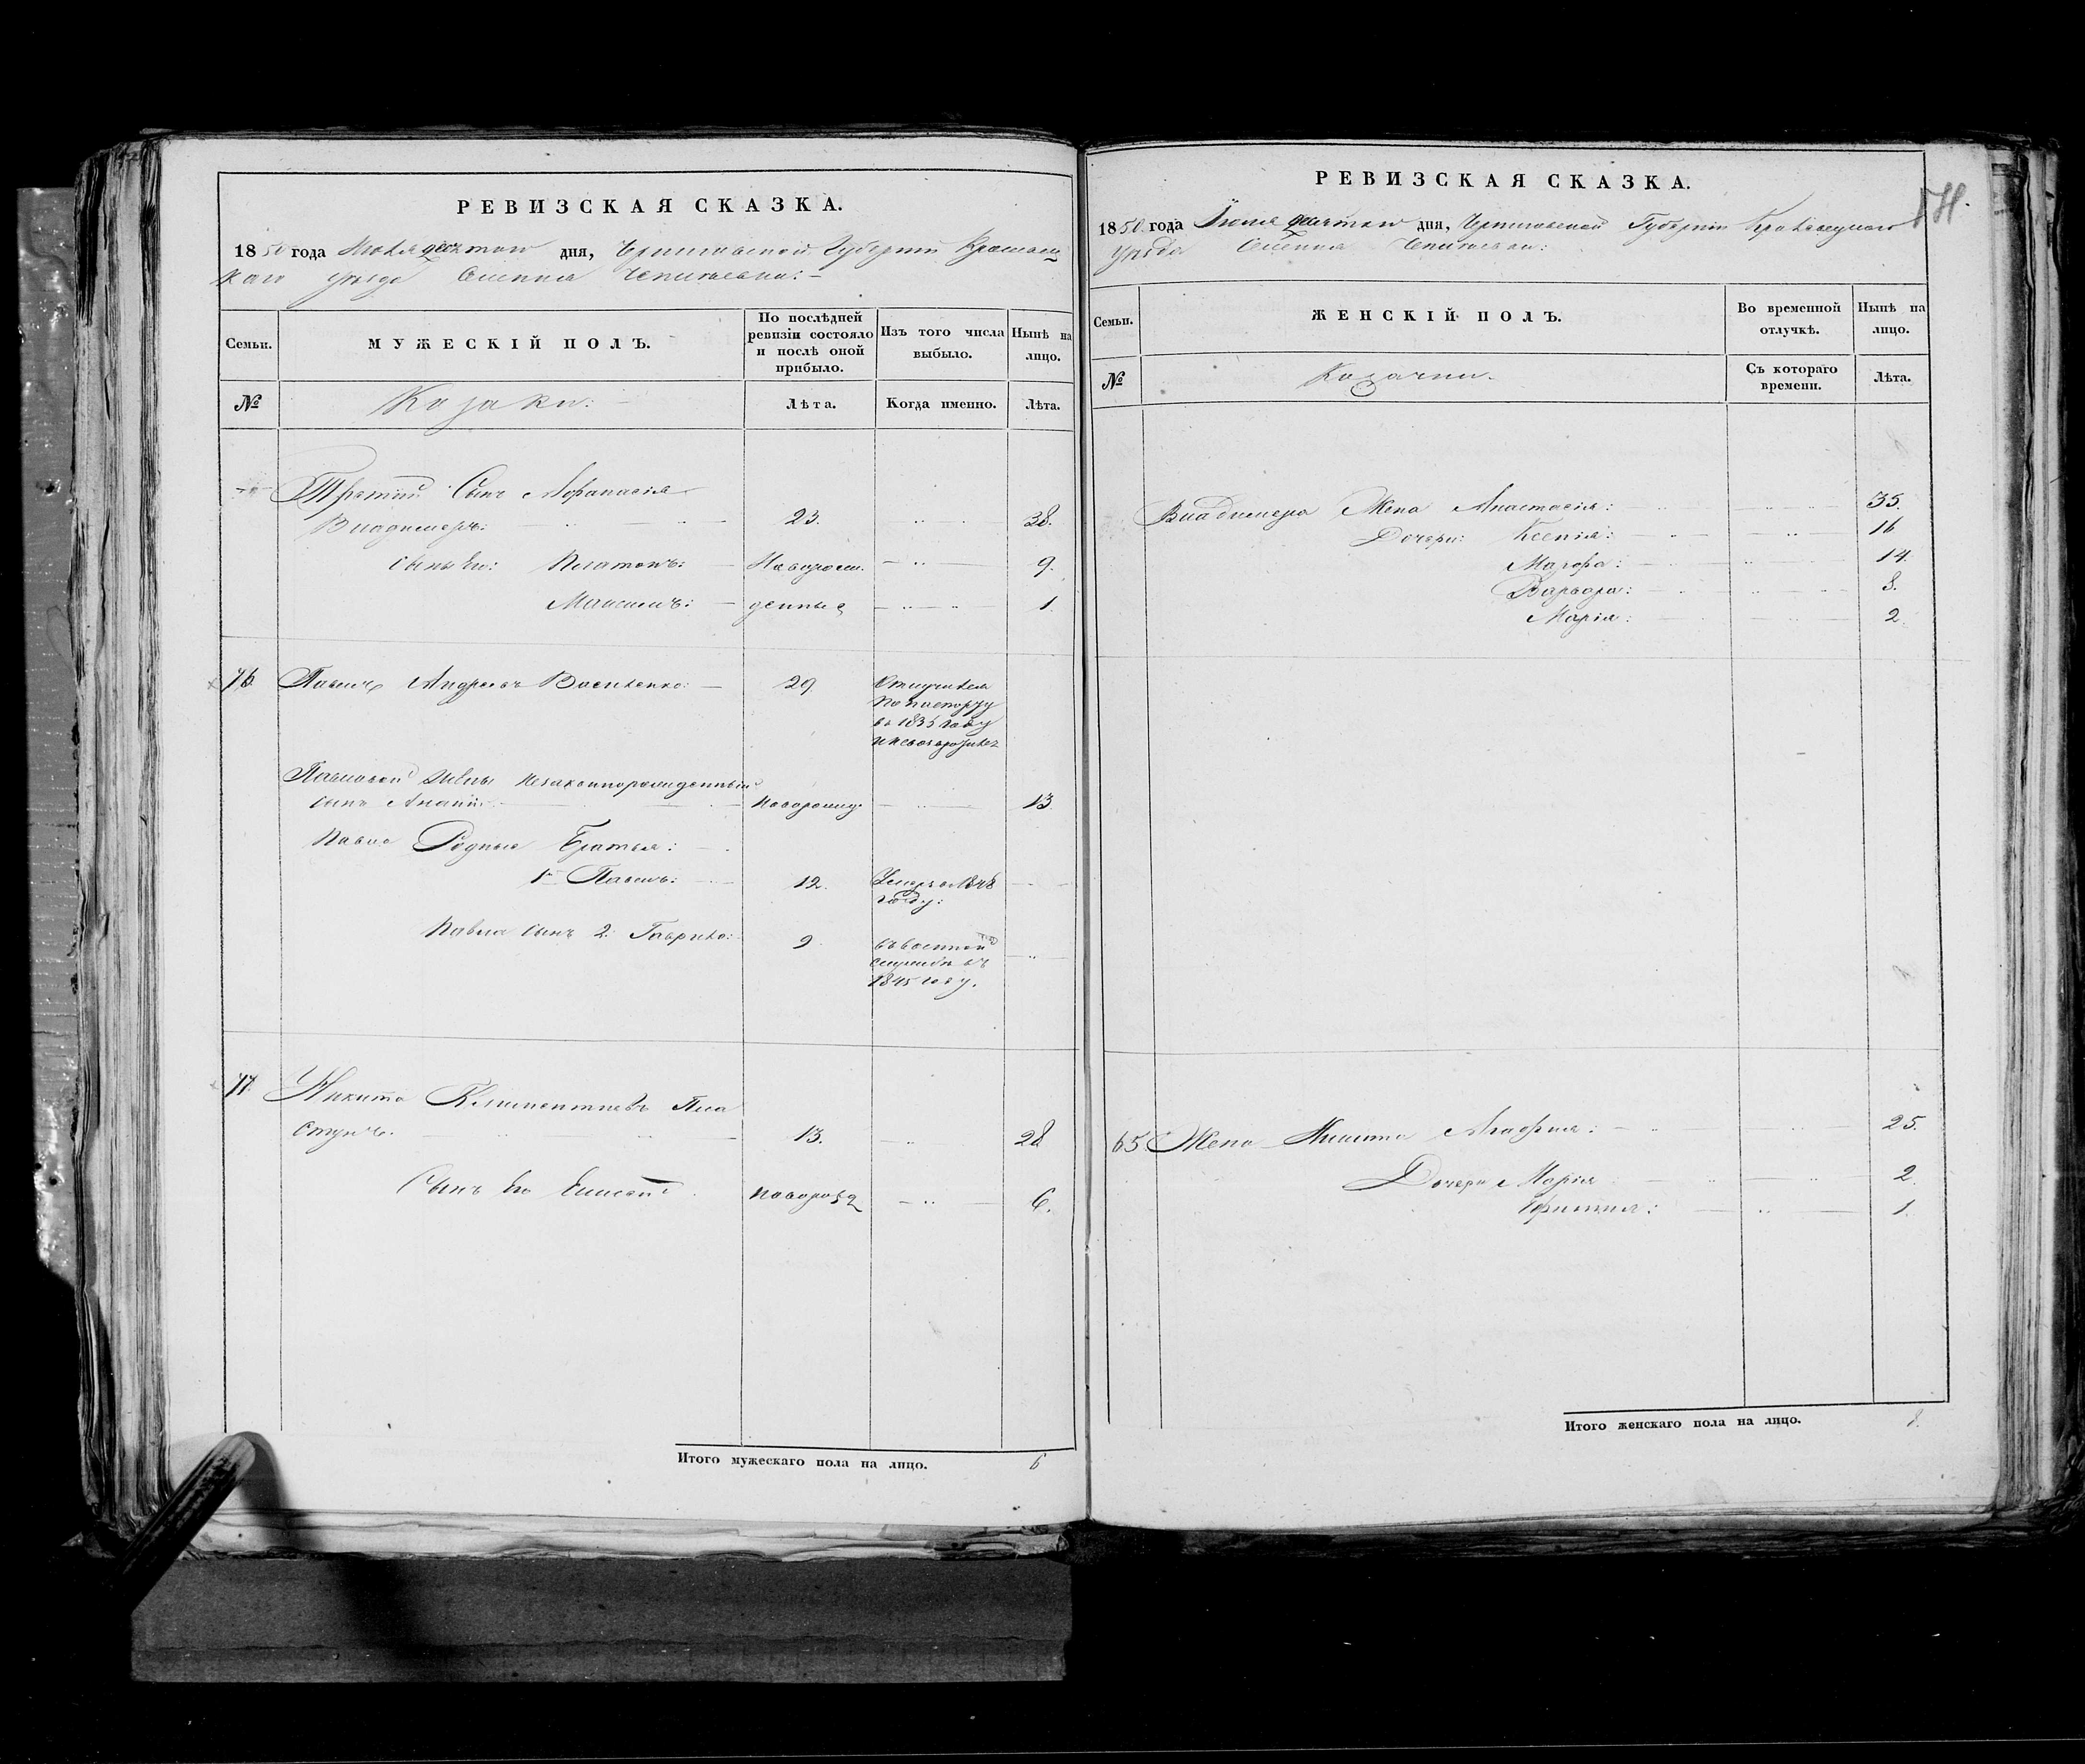 РЕВИЗСКАЯ СКАЗКА.
1850 года Июля десятаго дня, Черниговской Губерніи Кролевец
каго уѣзда Селенія
Семьи.
МУЖЕСКІЙ ПОЛЪ.
По послѣдней ревизіи состояло и послѣ оной прибыло.
Изъ того числа выбыло.
Нынѣ на лицо.
№
Козаки:
Лѣта.
Когда именно.
Лѣта.
Третій Сынъ Афанасія
Владимеръ: 23. 38.
Сыны Его: Платонъ: Новорож. 9.
Максимъ: денные 1.
76. Павелъ Андреевъ Василенко: 29
Отлучился
по паспорту
въ 1835 году
Павловой Жены незаконнорожденный
сынъ Ананій новорожд. 13.
Павла Родные Братья:
1й Павелъ: 12. Умеръ в 1848
году:
Павла сынъ 2. Гаврило: 9.
въ военной
службѣ съ
1845 году.
77. Никита Климентиевъ Пла
стунъ. 13. 28
Сынъ Его 6.
Итого мужескаго пола на лицо. 6
РЕВИЗСКАЯ СКАЗКА.
1850 года Іюля десятаго дня, Черниговской Губерніи Кролевецкаго
уѣзда Селенія
Семьи.
ЖЕНСКІЙ ПОЛЪ.
Во временной отлучкѣ.
Нынѣ на лицо.
№
Козачки.
Съ котораго времени.
Лѣта.
Владимера Жена Анастасія: 35.
Дочери: Ксенія: 16
Марфа: 14.
Варвара: 8.
Марія: 2.
65. Жена Никиты Агафия: 25.
Дочери Марія 2.
1.
Итого женскаго пола на лицо. 8.